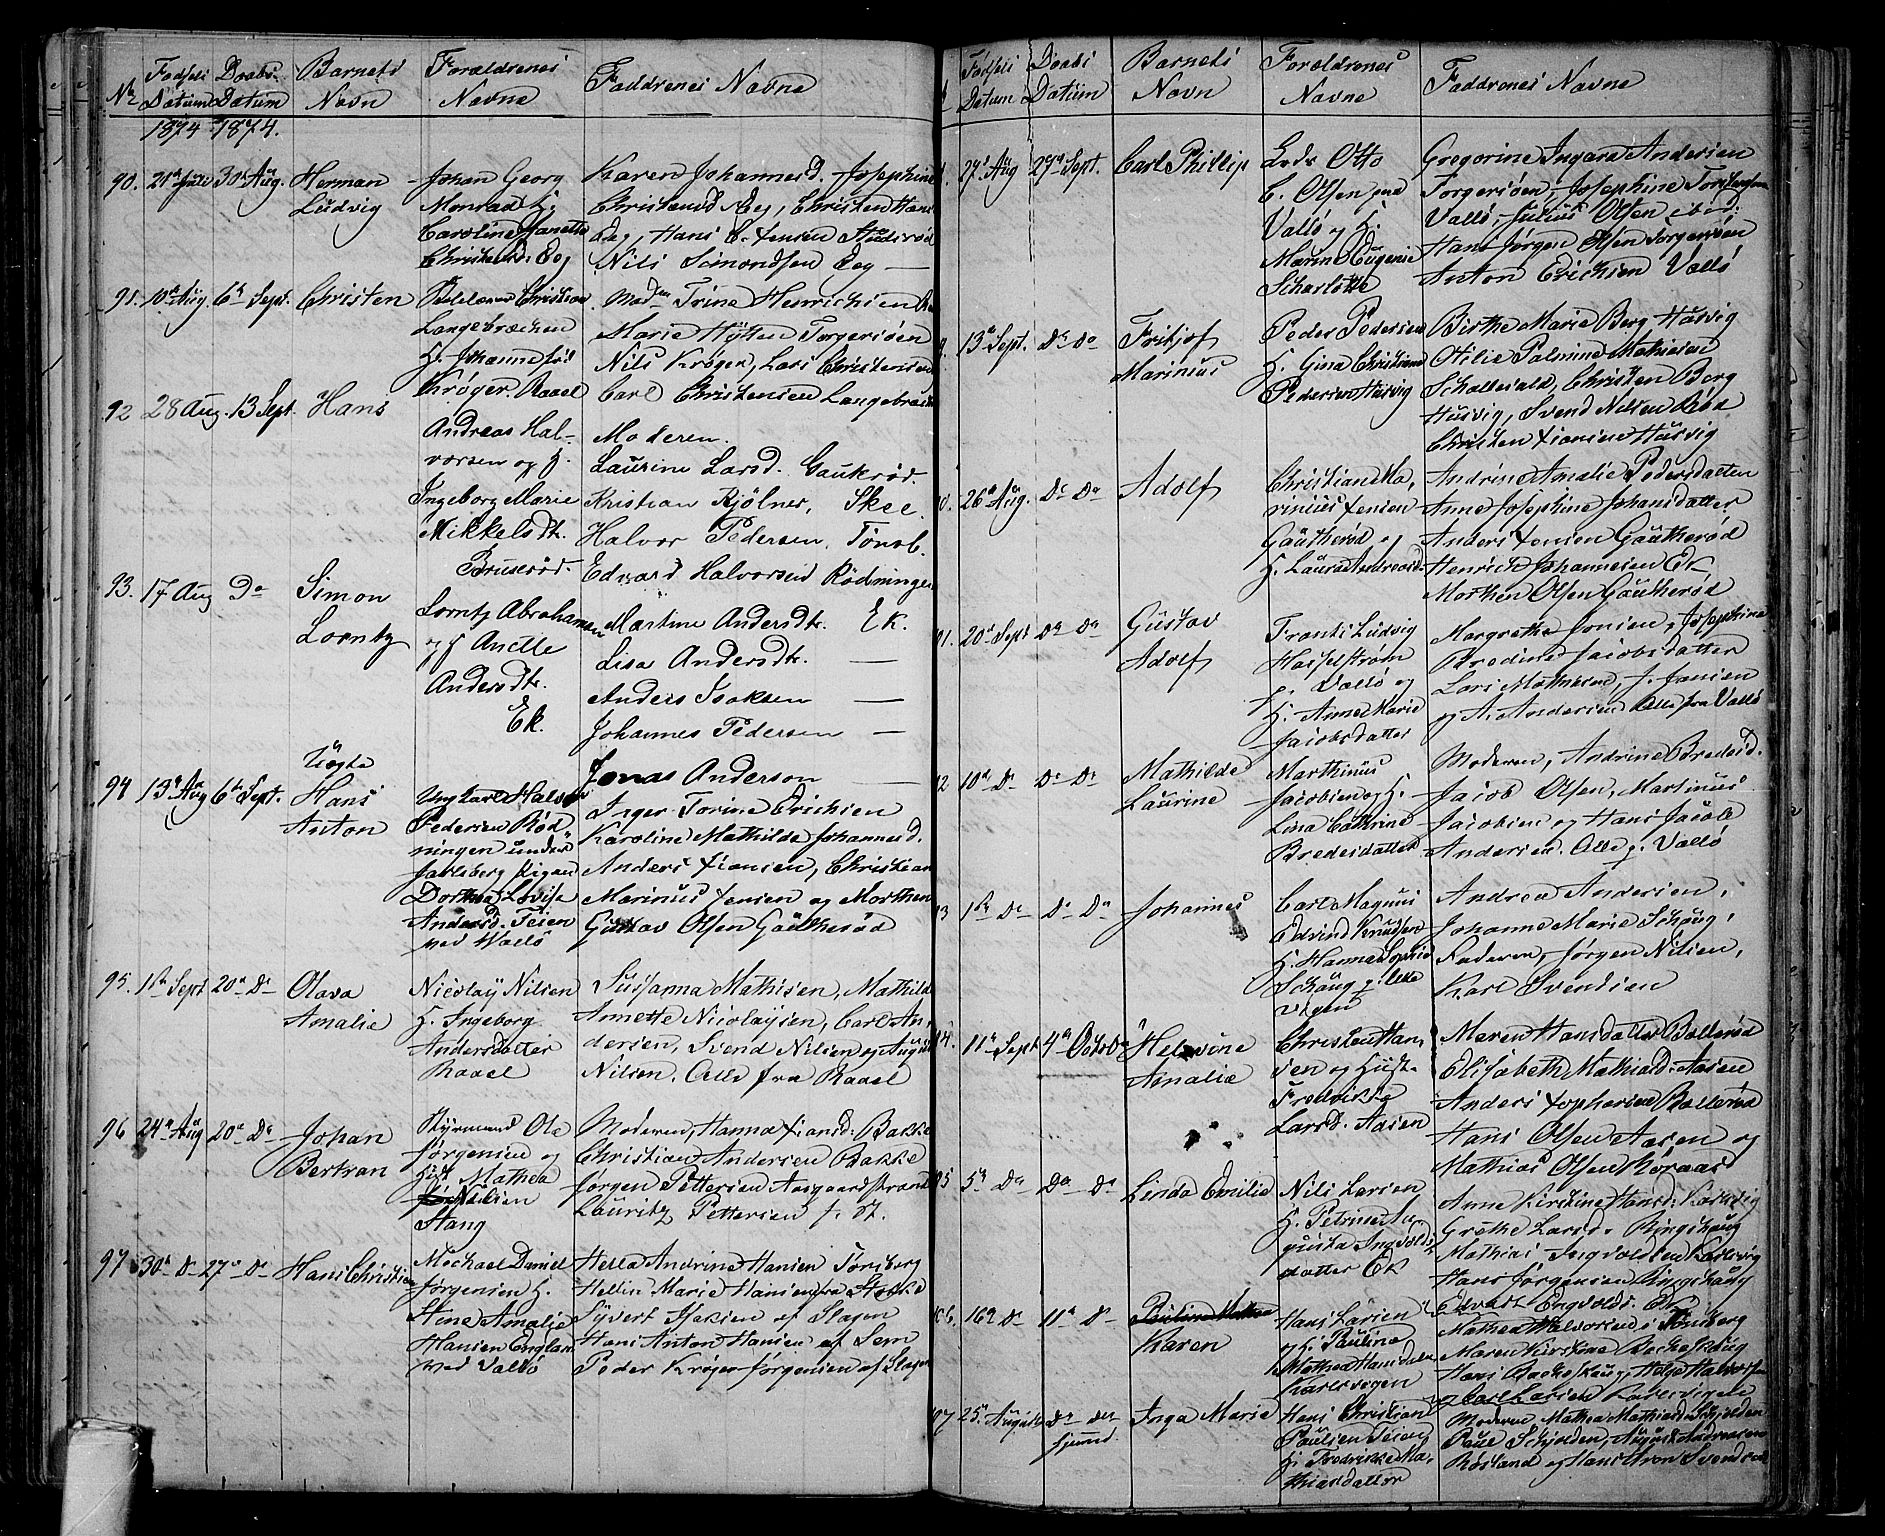 No Fødsels Datum Daabs. Datum Barnets Navn Forældrenes Navne Faddrenes Navne
1874 1874.
90. 21de Juli 30te Aug. Herman Ludvig
Johan Georg
Monrad h.
Caroline Janette
Christensd. Eeg
Karen Johannesd. Josephine
Christensd Eeg, Christen Hans
Eeg, Hans C. Jensen
Nils Simondsen Eeg —
91. 10de Aug. 6te Sept. Christen
Christian
Langebrechen
h. Johanne
Krøger. Raael
Trine Henrichsen
Marie Torgersøen
Nils Krøger, Lars Christensen
Carl Christensen
92 28 Aug. 13 Sept. Hans
Andreas Hal-
vorsen og h.
Ingeborg Marie
Mikkelsdtr.
Bruserød.
Moderen.
Laurine Larsd. Gaukerød.
Kristian Kjølner, Skee.
Halvor Pedersen, Tønsb.
Edvard Halvorsen Rødningen
93. 17 Aug Do Simon Lorntz
Lorntz Abrahamsen
og h Anette
Andersdtr.
Ek.
Martine Andersdtr. Ek.
Lisa Andersdtr. —
Anders Isaksen —
Johannes Pedersen —
Jonas Anderson —
94 13de Aug 6te Sept. Uægte Hans Anton
Ungkarl Halvor
Pedersen Rød-
ningen under
Jarlsberg Pigen
Dorthea Lovise
Andersd. Teien
ved Vallø
Inger Torine Erichsen
Karoline Mathilde Johannesd.
Anders Hansen, Christian
Marinus Jensen og Morthen
Gustav Olsen Gautherød
95. 1ste Sept 20de Do Olava Amalie
Nicolay Nilsen
h. Ingeborg
Andersdatter
Raael
Susanna Mathisen, Mathilde
Annette Nicolaysen, Carl An-
dersen, Svend Nilsen og August
Nilsen. Alle fra Raael
96 24de Aug 20de Do Johan Bertran
Styrmand Ole
Jørgensen og
Hust. Mathea
Nilsen
Stang
Moderen, Hanna Hansd: Bakke
Christian Andersen Bakke
Jørgen Pettersen Aasgaardstrand
Lauritz Pettersen
97 30te Do 27de Do Hans Christian
Michael Daniel
Jørgensen h.
Aine Amalie
Hansen England
ved Vallø
Hella Andrine Hansen Tønsberg
Hellin Marie Hansen fra Stokke
Syvert Isaksen af Slagen
Hans Anton Hansen af Sem
Peder Krøger Jørgensen af Slagen
Fødsels Datum Daabs Datum Barnets Navn Forældrenes Navne Faddrenes Navne
27de Aug 27de Sept. Carl Phillip
Lods Otto
C. Olsen paa
Vallø og h.
Marin Eugenie
Scharlotte
Gregorine Ingara Andersen
Torgersøen, Josephine
Vallø, Julius Olsen ibid.
Hans Jørgen Olsen Torgersøen
Anton Erichsen Vallø
13de Sept. Do Do Fritjof Marinius
Peder Pedersen
h. Gina Christiane
Pedersen Husvig
Birthe Marie Berg Husvig
Otilie Palmine Mathisen
Christen Berg
Husvig, Svend Nilsen
Christen Hansen Husvig
26de Aug. Do Do Adolf
Christian Ma,
rinius Jensen
Gautherød og
h. Laura Andreasd.
Andrine Amalie Pedersdatter
Anne Josephine Johansdatter
Anders Jensen Gautherød
Henrich Johannesen Ek
Morthen Olsen Gautherød
20de Sept Do Do Gustav Adolf
Frants Ludvig
Hasselstrøm
Vallø og
h. Anne Marie
Jacobsdatter
Margrethe Jonsen, Josephine
Bredine Jacobsdatter
Lars Mathisen, J. Jansen
og A. Andersen Alle fra Vallø
10de Do Do Do Mathilde Laurine
Marthinus
Jacobsen og h.
Lina Cathrine
Bredesdatter
Moderen, Andrine Bredesd.
Jacob Olsen, Martinus
Jacobsen og Hans Jacob
Andersen. Alle p. Vallø
1ste Do Do Do Johannes
Carl Magnus
Edvind Knudsen
h. Hanna Sophie
Schaug p. Ulle
vigen
Andrea Andersen,
Johanne Marie Schaug,
Faderen, Jørgen Nilsen,
Karl Svendsen
11te Sept 4de Octob. Helvine Amalie
Christen Han,
sen og Hust.
Fredrikke
Larsd. Aasen
Maren Hansdatter Bollerød
Elisabeth Mathiasd: Aasen
Anders Bollerød
Hans Olsen Aasen og
Mathias Olsen Røraas
5te Do Do Do Linda Emilie
Nils Larsen
h. Petrine Au
gusta Ingvolds
datter Ek
Anne Kirstine Hansd: Karlsvig
Grethe Larsd. Ringshaug
Mathias Ingvoldsen Karlsvig
Hans Jørgensen Ringshaug
Edvart Engvolds. Ek
16de Do 11te Do Karen
Hans Larsen
og h. Pauline
Mathea Hansdatter
Karlsvigen
Mathea Halvorsen, Tønsberg
Maren Kirstine Bachsskaug
Hans Bachsskaug, Helge Halvorsen
og Carl Larsen Karlsvigen
25de August Do Do hjemd. Inga Marie
Hans Christian
Paulsen
h. Fredrikke Ma,
thiasdatter
Moderen Mathea Mathiasd: Skjolden
Paul Skjolden, August Andreasen
Røsland og Hans Svendsen